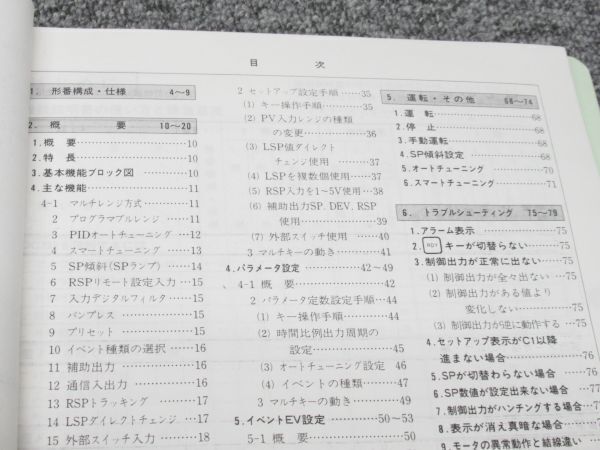 目 次
1. 形番構成・仕様 4～9
2. 概 要 10～20
1. 概 要 10
2. 特 長 10
3. 基本機能ブロック図 10
4. 主な機能 11
4-1 マルチレンジ方式 11
2 プログラマブルレンジ 11
3 PIDオートチューニング 12
4 スマートチューニング 13
5 SP傾斜(SPランプ) 14
6 RSPリモート設定入力 15
7 入力デジタルフィルタ 15
8 バンプレス 15
9 プリセット 15
10 イベント種類の選択 16
11 補助出力 16
12 通信入出力 16
13 RSPトラッキング 17
14 LSPダイレクトチェンジ 17
15 外部スイッチ入力 18
2 セットアップ設定手順 35
(1) キー操作手順 35
(2) PV入力レンジの種類
の変更 36
(3) LSP値ダイレクト
チェンジ使用 37
(4) LSPを複数個使用 37
(5) RSP入力を1～5V使用 38
(6) 補助出力SP、DEV、RSP
使用 39
(7) 外部スイッチ使用 40
3 マルチキーの動き 41
4. パラメータ設定 42～49
4-1 概 要 42
2 パラメータ定数設定手順 44
(1) キー操作手順 44
(2) 時間比例出力周期の
設定 45
(3) オートチューニング設定 46
(4) イベントの種類 47
3 マルチキーの動き 49
5. イベントEV設定 50～53
5-1 概 要 50
5. 運転・その他 68～74
1. 運 転 68
2. 停 止 68
3. 手動運転 68
4. SP傾斜設定 68
5. オートチューニング 70
6. スマートチューニング 71
6. トラブルシューティング 75～79
1. アラーム表示 75
2. RDY キーが切替らない 75
3. 制御出力が正常に出ない 75
(1) 制御出力が全々出ない 75
(2) 制御出力がある値より
変化しない 75
(3) 制御出力が逆に動作する 75
4. セットアップ表示がC1以降
進まない場合 76
5. SPが切替わらない場合 76
6. SP数値が設定出来ない場合
7. 制御出力がハンチングする場合
8. 表示が消え真暗な場合
9. モータの異常動作と結線違い